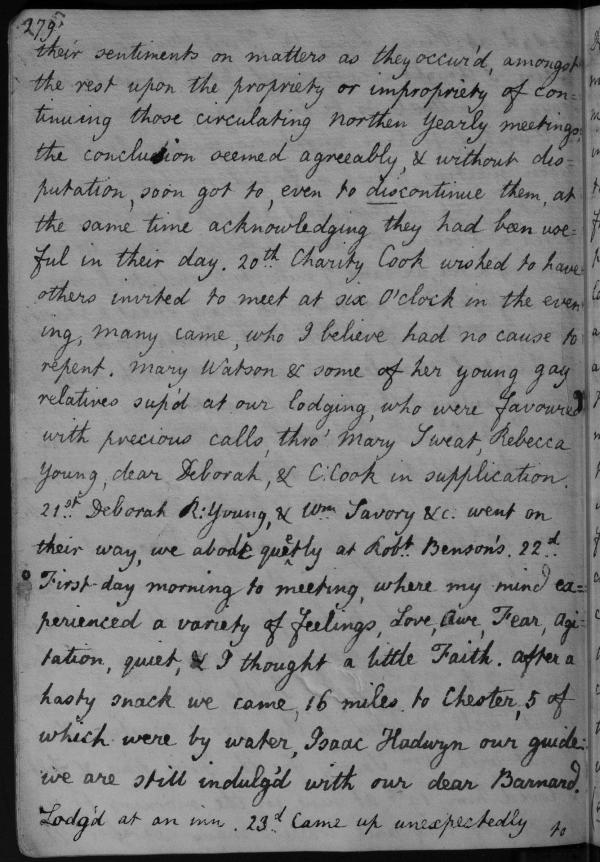 279
their sentiments on matters as they occur'd, amongst
the rest upon the propriety or impropriety of con=
tinuing those circulating Northen Yearly meetings;
the conclusion seemed agreeably, & without dis=
putation, soon got to, even to discontinue them, at
the same time acknowledging they had been use=
ful in their day. 20th Charity Cook wished to have
others invited to meet at six O'clock in the even
ing, many came, who I believe had no cause to
repent. Mary Watson & some of her young gay
relatives sup'd at our lodging, who were favoured
with precious calls, thro' Mary Sweat, Rebecca
Young, dear Deborah, & C: Cook in supplication.
21st Deborah R: Young, & Wm Savory &c. went on
their way, we abode quietly at Robt Benson's. 22d
First-day morning to meeting, where my mind ex=
perienced a variety of feelings, Love, Awe, Fear, Agi=
tation, quiet, & I thought a little Faith. After a
hasty snack we came, 16 miles to Chester, 5 of
which were by water, Isaac Hadwyn our guide:
we are still indulg'd with our dear Barnard.
Lodg'd at an inn. 23d Came up unexpectedly
to